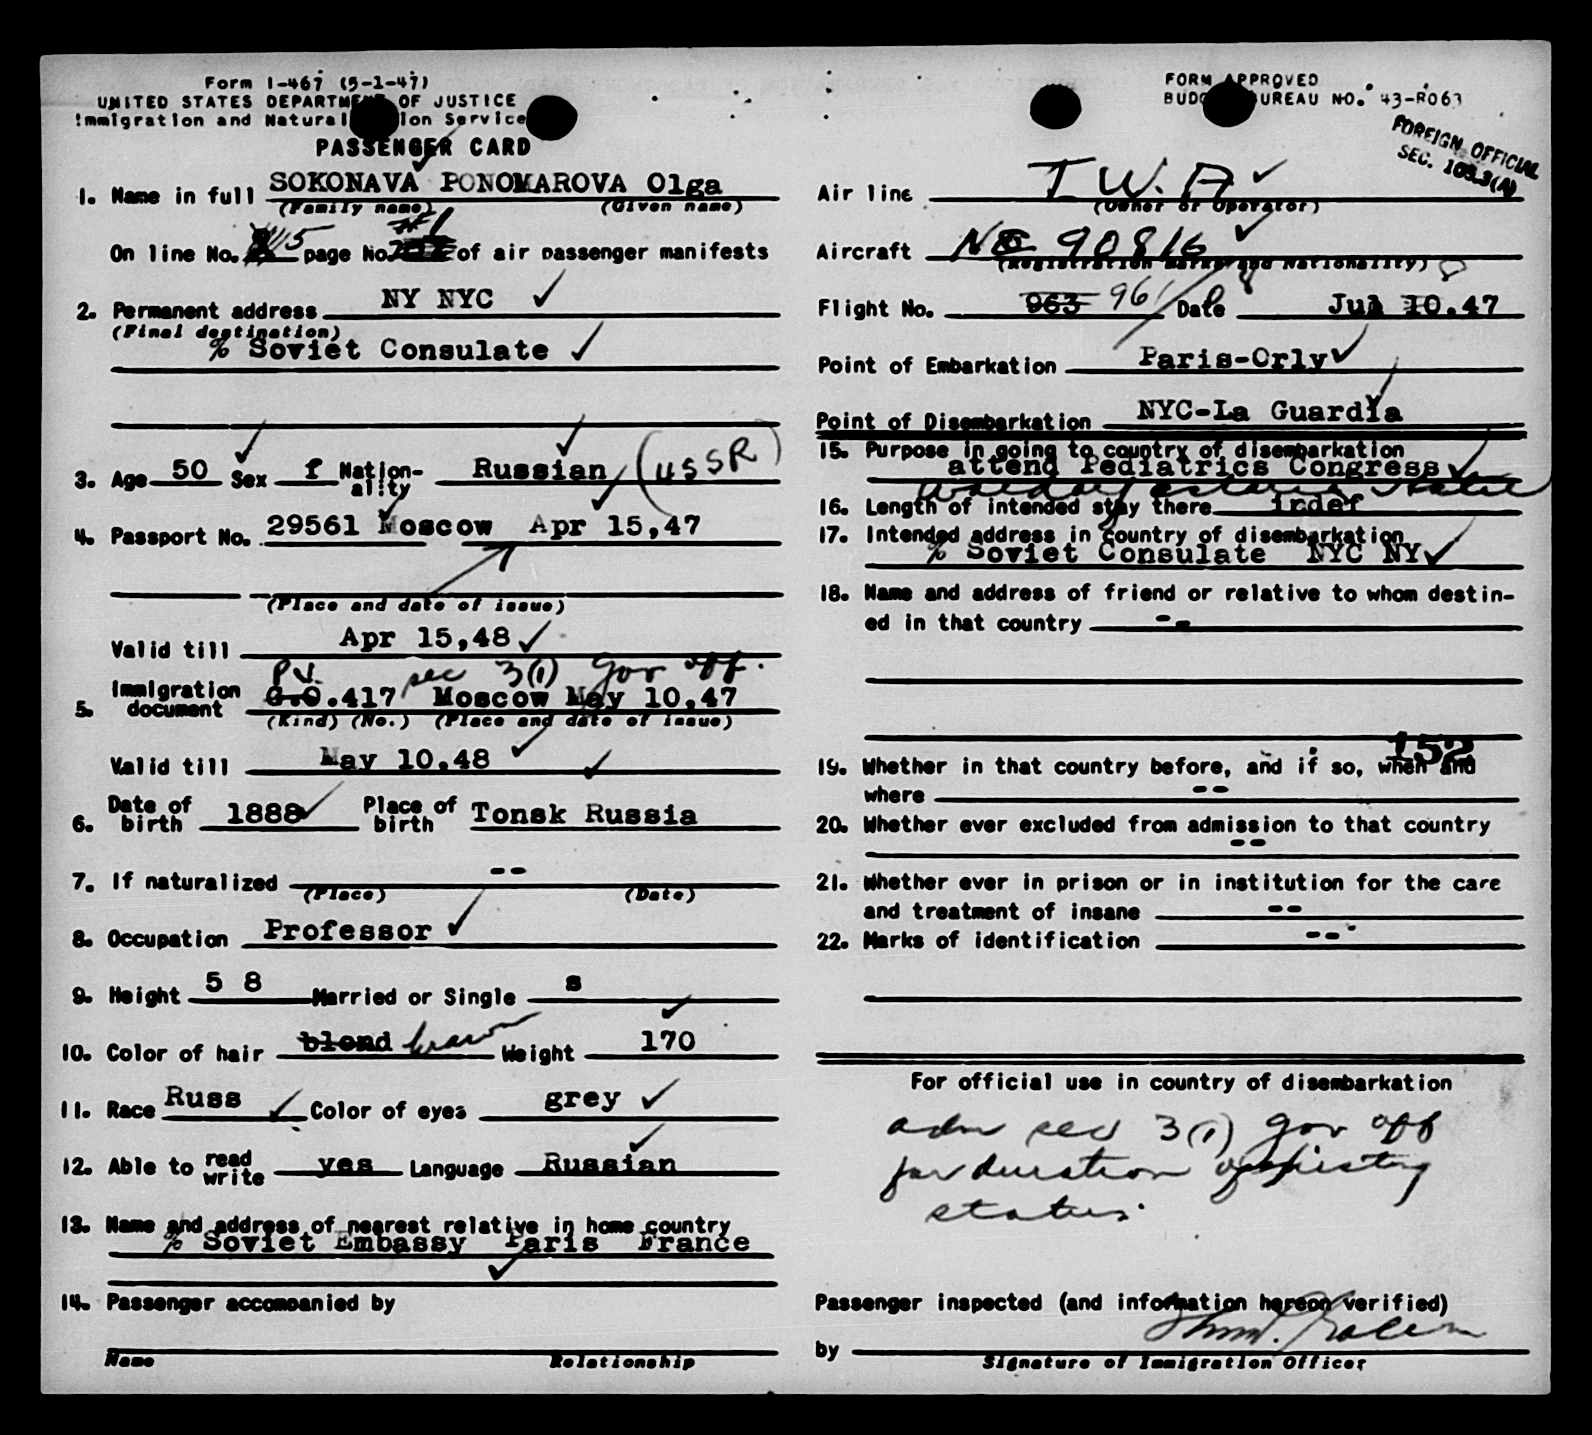 Form I-467 (5-1-47)
UNITED STATES DEPARTMENT OF JUSTICE
Immigration and Naturalization Service
PASSENGER CARD
FORM APPROVED
BUDGET BUREAU NO. 43-R063
FOREIGN OFFICIAL
SEC. 103.3(A)
1. Name in full SOKONAVA PONOMAROVA Olga
(Family name) (Given name)
On line No. 5 page No. #1 of air passenger manifests
2. Permanent address NY NYC
(Final destination)
% Soviet Consulate
3. Age 50 Sex f Nationality Russian (USSR)
4. Passport No. 29561 Moscow Apr 15,47
(Place and date of issue)
Valid till Apr 15,48
P.V. sec 3(1) gov off.
5. Immigration document G.O.417 Moscow May 10,47
(Kind) (No.) (Place and date of issue)
Valid till May 10,48
6. Date of birth 1888 Place of birth Tonsk Russia
7. If naturalized --
(Place) (Date)
8. Occupation Professor
9. Height 5 8 Married or Single s
10. Color of hair blond brown Weight 170
11. Race Russ Color of eyes grey
12. Able to read write yes Language Russian
13. Name and address of nearest relative in home country
% Soviet Embassy Paris France
14. Passenger accompanied by
Name Relationship
Air line T.W.A
(Owner or Operator)
Aircraft NC 90816
(Registration marks and Nationality)
Flight No. 963 961 Date Jul 10,47
Point of Embarkation Paris-Orly
Point of Disembarkation NYC-La Guardia
15. Purpose in going to country of disembarkation
attend Pediatrics Congress
Waldorf Astoria Hotel
16. Length of intended stay there indef
17. Intended address in country of disembarkation
% Soviet Consulate NYC NY
18. Name and address of friend or relative to whom destin-
ed in that country --
152
19. Whether in that country before, and if so, when and
where --
20. Whether ever excluded from admission to that country
--
21. Whether ever in prison or in institution for the care
and treatment of insane --
22. Marks of identification --
For official use in country of disembarkation
adm sec 3(1) gov off
for duration of existing
status.
Passenger inspected (and information hereon verified)
by
Signature of Immigration Officer